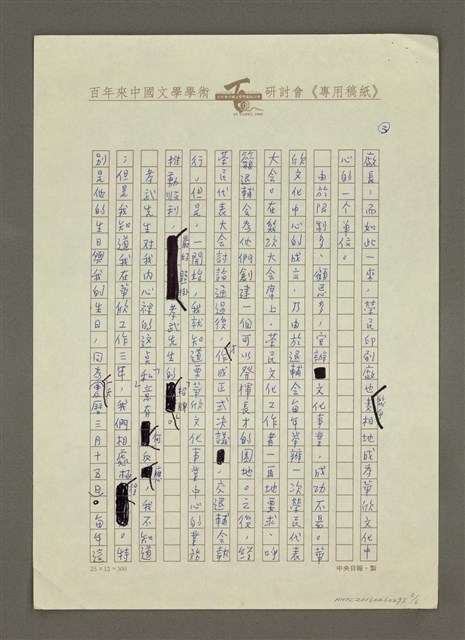 百年來中國文學學術研討會《專用稿紙》
③
廠長，而如此一來，榮民印刷廠也就變相地成為華欣文化中
心的一個單位。
由於限制多，顧忌多，官辦文化事業，成功不易。華
欣文化中心的成立，乃由於退輔會每年舉辦一次榮民代表
大會。在幾次大會席上，榮民文化工作者一再地要求、呼
籲退輔會為他們創建一個可以發揮長才的園地。之後，經
榮民代表大會討論通過後，才作成正式決議，交退輔會執
行。但是，一開始，我就知道要華欣文化事業中心的業務
推動順利，孝武先生的招牌。
孝武先生對我內心裡的這点「私」意有何反應，我不知道
；但是我知道我在華欣工作三年，我們相處極佳。特
別是他的生日傍我的生日，同為農曆三月十五日。每年這
25×12=300
中央日報‧製
NMTL20160260293 2/6